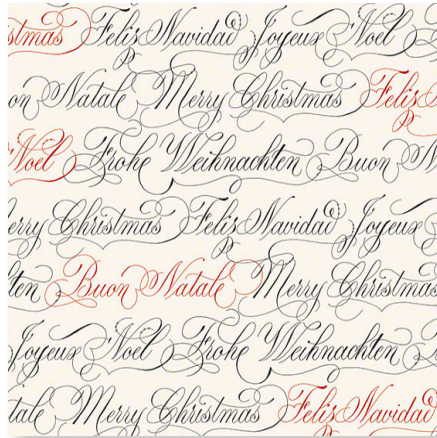 stmas Feliz Navidad Joyeux Noel
on Natale Merry Christmas Feliz
Noel Frohe Weihnachten Buon N
erry Christmas Feliz Navidad Joyeux
ten Buon Natale Merry Christmas
Joyeux Noel Frohe Weihnachten
tale Merry Christmas Feliz Navidad